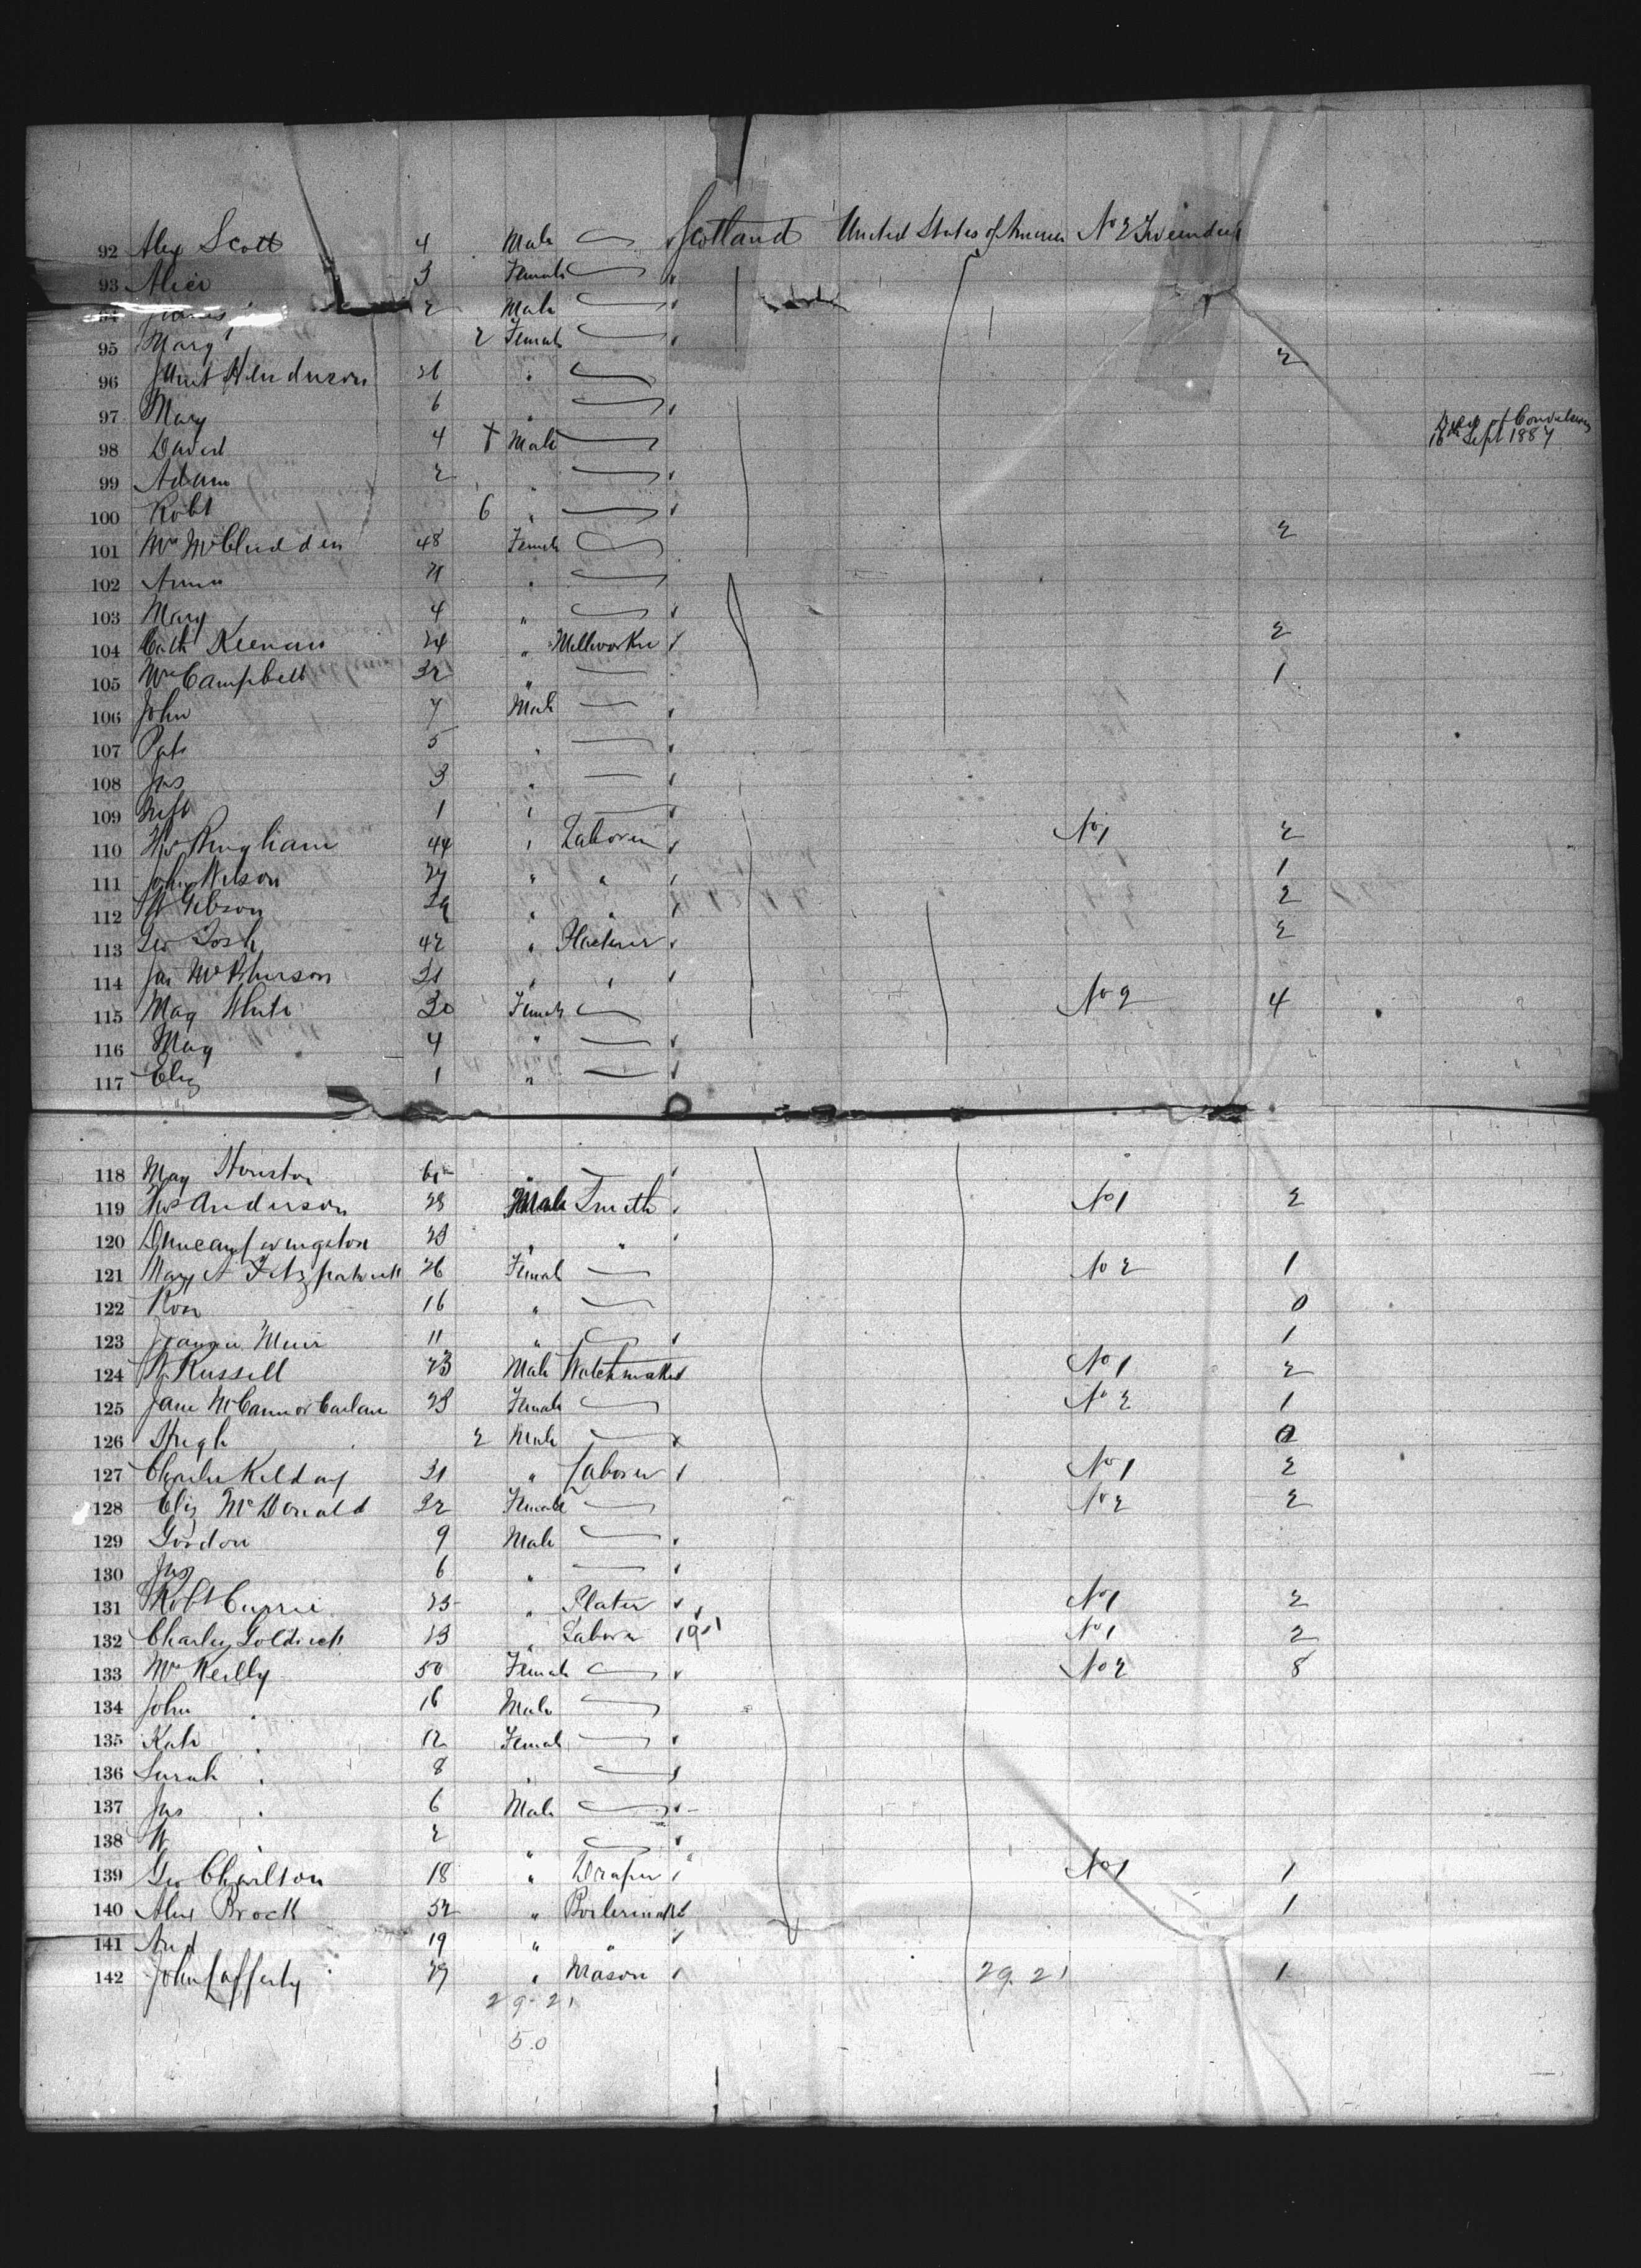 92 Alex Scott 4 Male Scotland United States of America No 2
93 Alice 3 Female
94 James 2 Male
95 Mary 2 Female
96 Henderson 26 " 2
97 Mary 6 "
98 David 4 † Male of Convulsions
16th Sept 1887
99 Adam 2 "
100 Robt 6 "
101 Mrs 48 Female 2
102 Annie "
103 Mary 4 "
104 Cath Keenan 24 " Millworker 2
105 Mrs Campbell 32 " 1
106 John 7 Male
107 Pat 5 "
108 Jas 3 "
109 1 "
110 44 " Laborer No 1 2
111 John Wilson 27 " " 1
112 W Gibson " " 2
113 Geo Tosh 42 " 2
114 Jas McPherson 21 " "
115 Mag White 30 Female No 2 4
116 Mag 4 "
117 Eliz 1 "
118 May Houston "
119 Anderson 28 Male Smith No 1 2
120 Duncan Livingston 23 " "
121 Mary A Fitzpatrick 26 Female No 2 1
122 Rose 16 " 0
123 Muir 11 " 1
124 W Russell 23 Male Watchmaker No 1 2
125 Jane McCann or 23 Female No 2 1
126 Hugh 2 Male
127 Charles 21 " Laborer No 1 2
128 Eliz McDonald 22 Female No 2 2
129 Gordon 9 Male
130 Jas 6 "
131 Robt Currie 23 " Plater No 1 2
132 Charley 23 " Laborer No 1 2
133 Mrs Reilly 50 Female No 2 8
134 John " 16 Male
135 Kate " 12 Female
136 Sarah " 8 "
137 Jas " 6 Male
138 W " 2 "
139 Geo Charlton 18 " Draper No 1 1
140 Alex Brock 52 " Boilermaker 1
141 And 19 " "
142 John Lafferty 29 " Mason 29.21 1
29-21
50